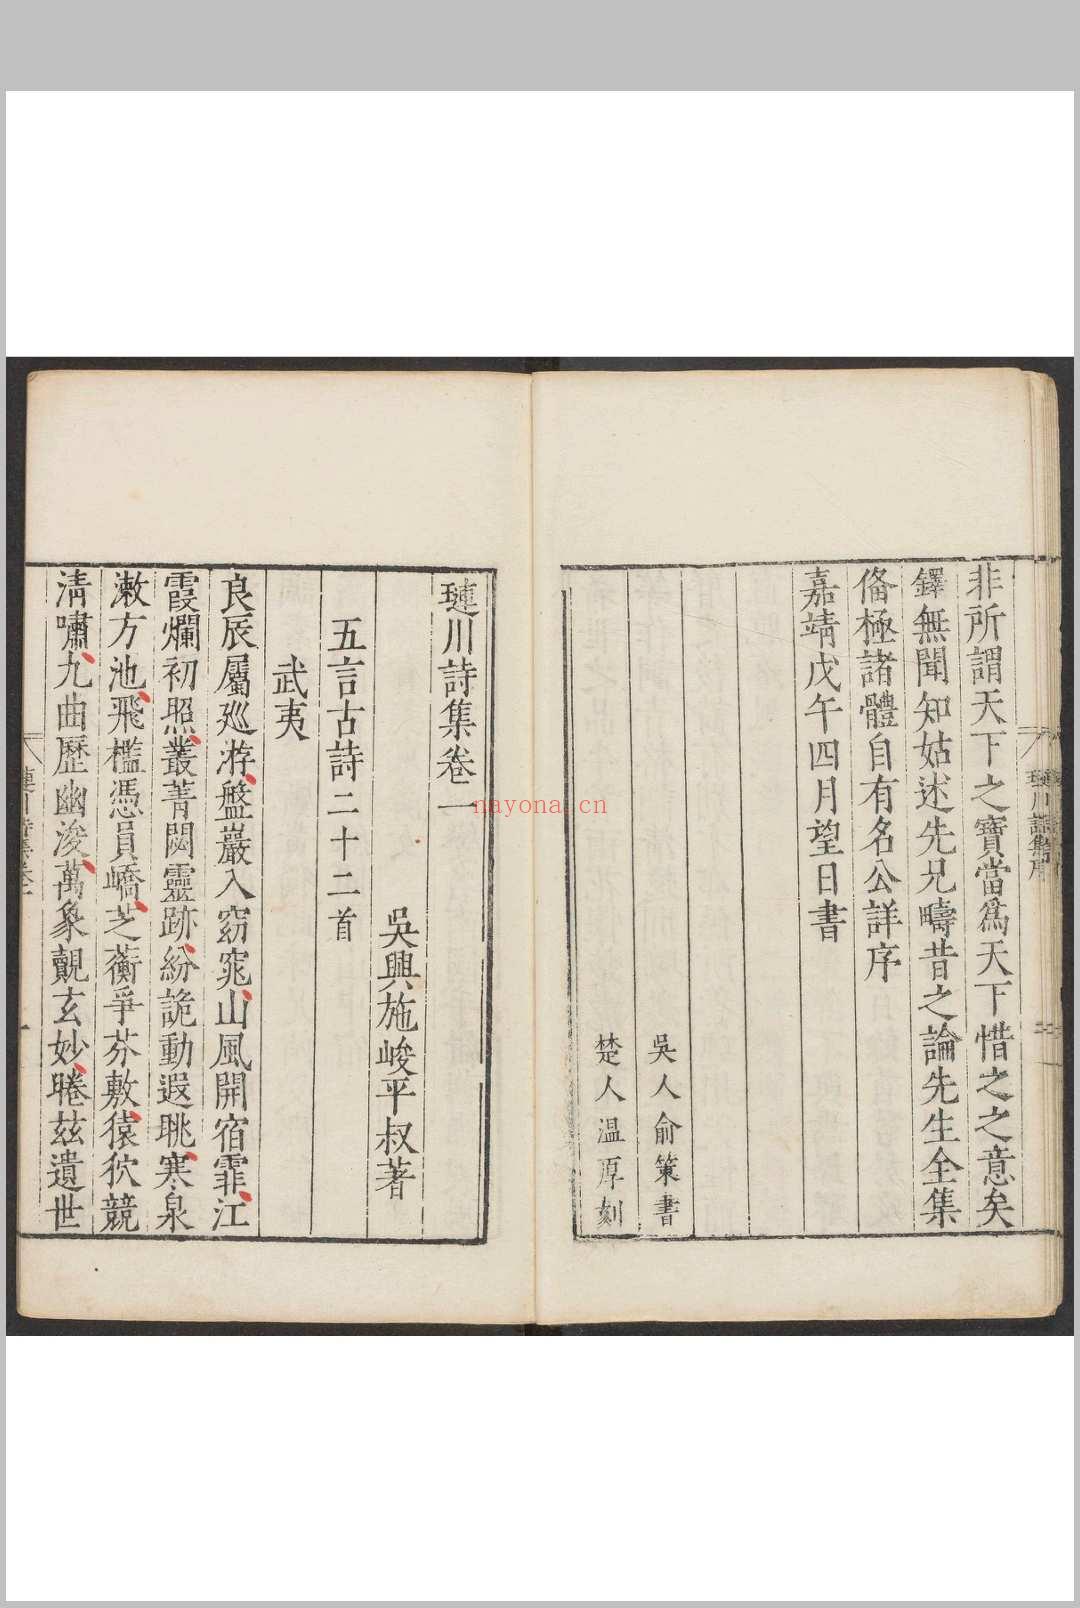 非所謂天下之寶當爲天下惜之之意矣
鐸無聞知姑述先兄疇昔之論先生全集
俻極諸體自有名公詳序
嘉靖戊午四月望日書
吳人俞策書
楚人溫厚刻
璉川詩集卷二
吳興施峻平叔著
五言古詩二十二首
武夷
良辰屬廵游盤巖入窈窕山風開宿霏江
霞爛初照叢菁閟靈跡紛詭動遐眺寒泉
漱方池飛檻憑員嶠芝蘅爭芬敷猿狖競
清嘯九曲歷幽浚萬象覿玄妙睠玆遺世
nayona.cn